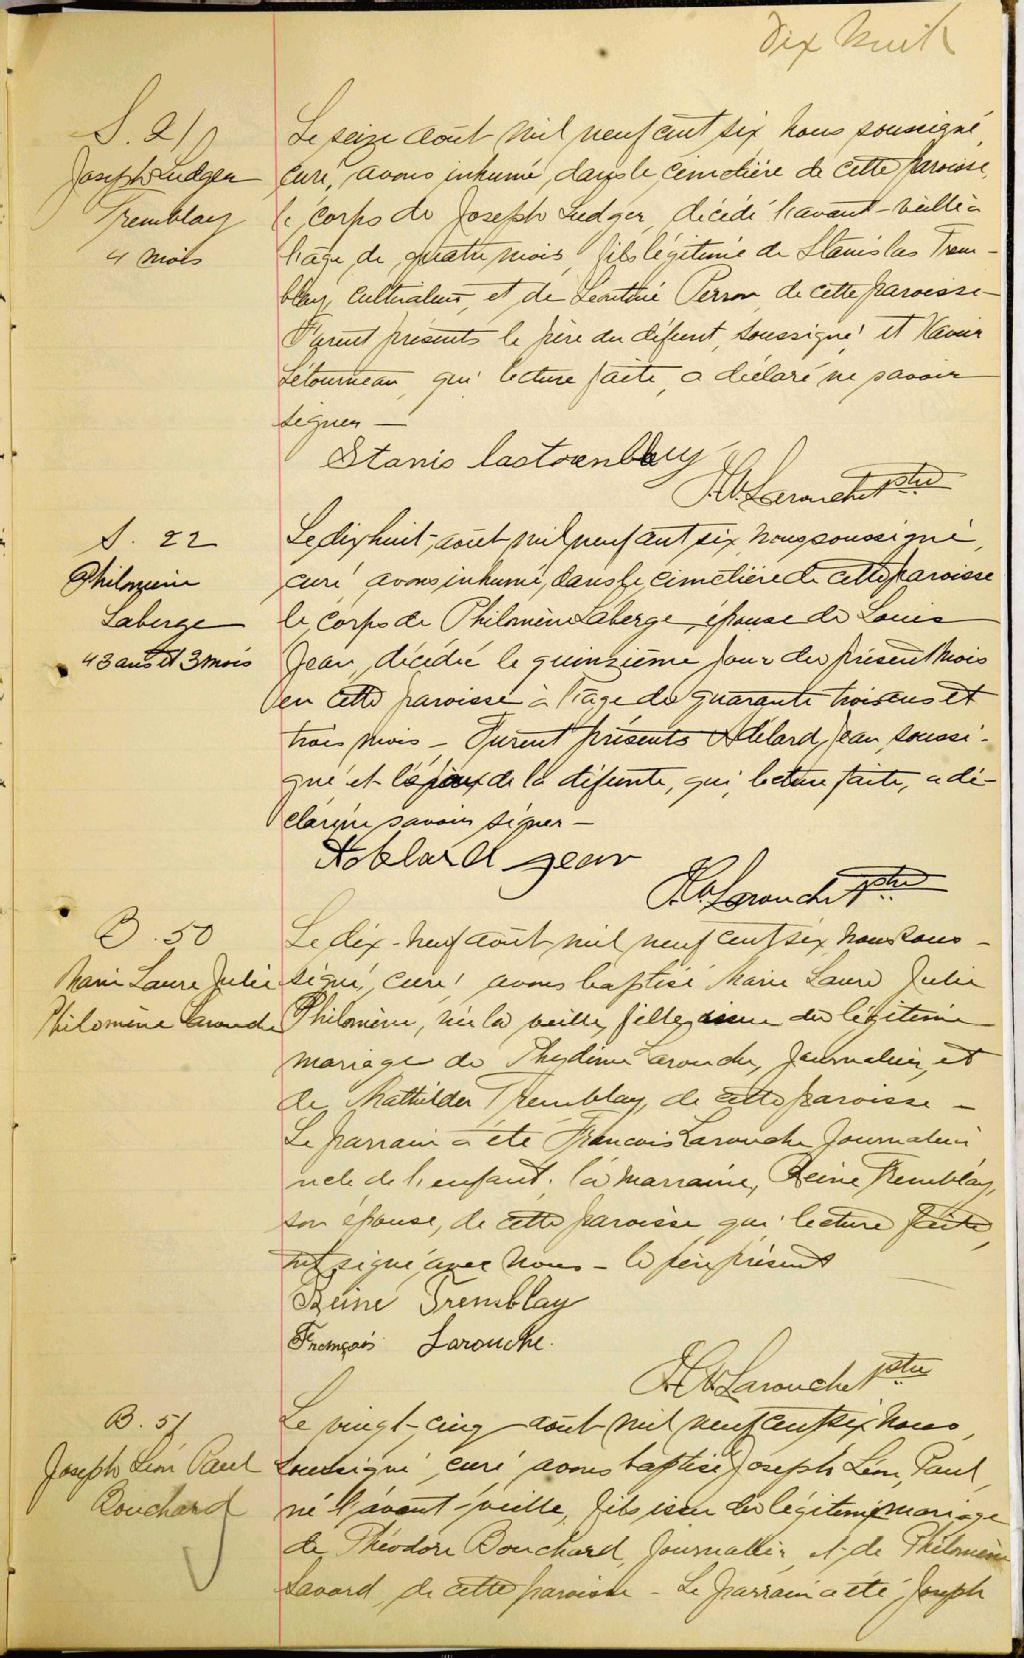 Dix huit
S. 21
Joseph Ludger
Tremblay
4 mois
Le seize août mil neuf cent six nous soussigné,
curé, avons inhumé, dans le cimetière de cette paroisse,
le corps de Joseph Ludger, décédé l'avant-veille à
l'âge de quatre mois, fils légitime de Stanislas Trem-
blay, cultivateur, et de Léontine Perron de cette paroisse -
Furent présents le père du défunt, soussigné et Xavier
Létourneau, qui lecture faite, a déclaré ne savoir
signer -
Stanis lastrenblay
Larouche ptre
S. 22
Philomène
Laberge
43 ans et 3 mois
Le dix huit, août mil neuf cent six, nous soussigné,
curé avons inhumé, dans le cimetière de cette paroisse
le corps de Philomène Laberge, épouse de Louis
Jean, décédée le quinzième jour du présent mois
en cette paroisse à l'âge de quarante trois ans et
trois mois - Furent présents Adélard Jean, soussi-
gné et l'époux de la défunte, qui, lecture faite, a dé-
claré ne savoir signer -
Adelard Jean
Larouche ptre
B. 50
Marie Laure Julie
Philomène Larouche
Le dix-neuf août mil neuf cent six, nous sous-
signé, curé, avons baptisé Marie Laure Julie
Philomène, née la veille, fille issue du légitime
mariage de Phydime Larouche, journalier, et
de Mathilda Tremblay, de cette paroisse -
Le parrain a été François Larouche journalier
oncle de l'enfant; la marraine, Reine Tremblay,
son épouse, de cette paroisse qui lecture faite,
ont signé avec nous - le père présent
Reine Tremblay
François Larouche.
Larouche ptre
B. 51
Joseph Léon Paul
Bouchard
Le vingt-cinq août mil neuf cent six nous,
soussigné, curé avons baptisé Joseph Léon, Paul,
né l'avant-veille, fils issu du légitime mariage
de Théodore Bouchard, journalier et de Philomène
Savard, de cette paroisse - Le parrain a été, Joseph